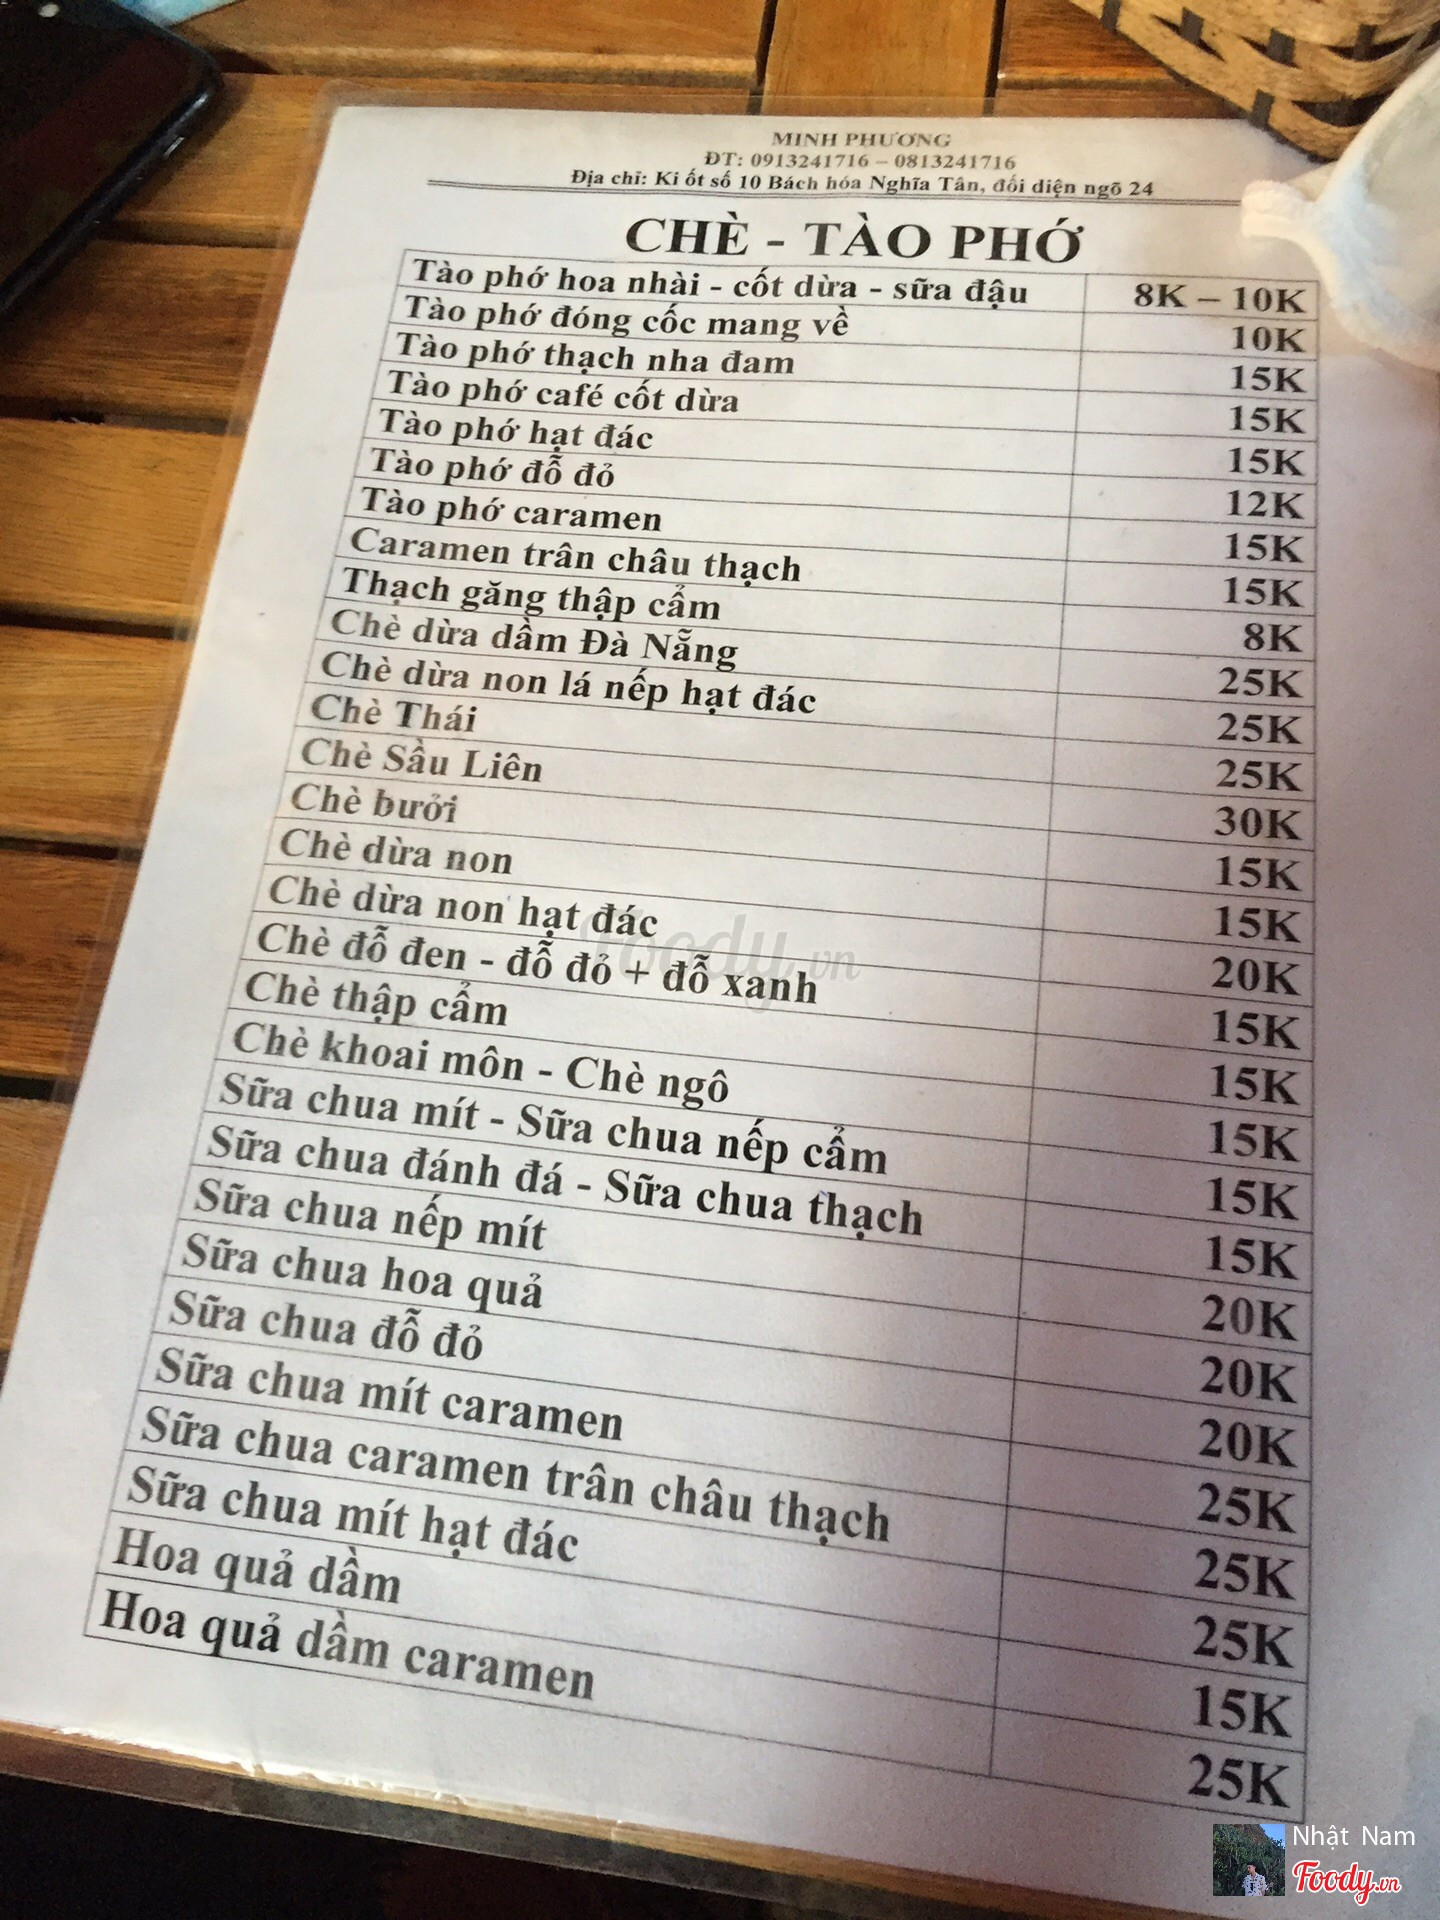 MINH PHƯƠNG
ĐT: 0913241716 – 0813241716
Địa chỉ: Ki ốt số 10 Bách hóa Nghĩa Tân, đối diện ngõ 24
CHÈ - TÀO PHỚ
Tào phớ hoa nhài - cốt dừa - sữa đậu 8K – 10K
Tào phớ đóng cốc mang về 10K
Tào phớ thạch nha đam 15K
Tào phớ café cốt dừa 15K
Tào phớ hạt đác 15K
Tào phớ đỗ đỏ 12K
Tào phớ caramen 15K
Caramen trân châu thạch 15K
Thạch găng thập cẩm 8K
Chè dừa dầm Đà Nẵng 25K
Chè dừa non lá nếp hạt đác 25K
Chè Thái 25K
Chè Sầu Liên 30K
Chè bưởi 15K
Chè dừa non 15K
Chè dừa non hạt đác 20K
Chè đỗ đen - đỗ đỏ + đỗ xanh 15K
Chè thập cẩm 15K
Chè khoai môn - Chè ngô 15K
Sữa chua mít - Sữa chua nếp cẩm 15K
Sữa chua đánh đá - Sữa chua thạch 15K
Sữa chua nếp mít 20K
Sữa chua hoa quả 20K
Sữa chua đỗ đỏ 20K
Sữa chua mít caramen 25K
Sữa chua caramen trân châu thạch 25K
Sữa chua mít hạt đác 25K
Hoa quả dầm 15K
Hoa quả dầm caramen 25K
Foody.vn
Nhật Nam
Foody.vn